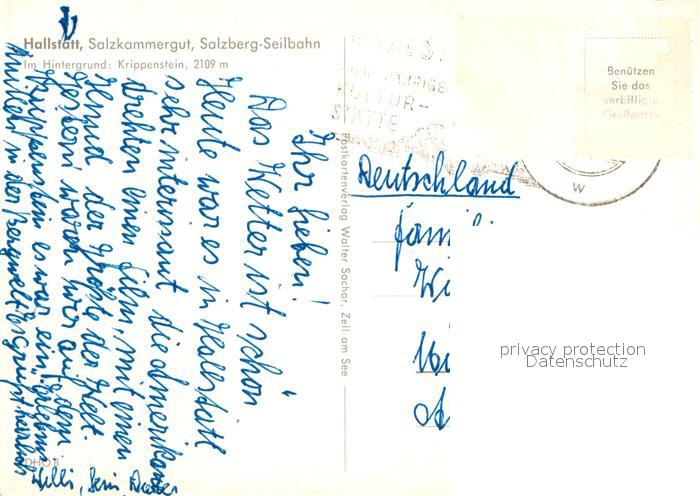 Hallstatt, Salzkammergut, Salzberg-Seilbahn
Im Hintergrund: Krippenstein, 2109 m
Ihr Lieben!
Das Wetter ist schön
Heute war es in Hallstatt
sehr interissant die Amerikaner
drehten einen Film, mit einem
Hund der Größte der Welt.
Gestern waren wir auf dem
Krippenstein es war ein Erlebnis
in der Bergwelt
Willi,
DHO 8
Postkartenverlag Walter Sochor, Zell am See
KULTUR-
STÄTTE
Benützen
Sie das
verbilligte
Großporto
W
Deutschland
Fami
Wi
privacy protection
Datenschutz